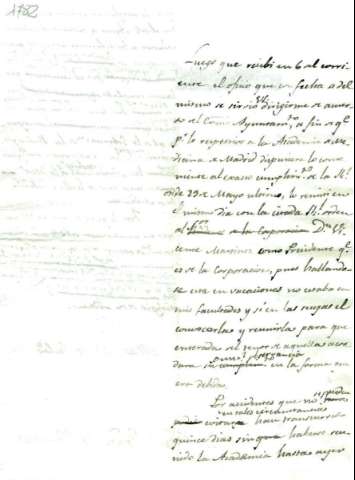 1782
Luego que recibi en 6 al corri
ente el oficio que con fecha 2 del
mismo se sirvió V. dirigirme de acuer
do del Exmo Ayuntam.to, a fin de q.e
p.r lo respectivo a la Academia
de Madrid dispusiera lo conve
niente al exacto cumplim.to de la R.l
orden 29 de Mayo ultimo, lo remiti en
el mismo dia con la citada R.l orden
al D.n Vi
cente Martinez como Presidente q.e
es de la Corporacion, pues hallando
se esta en vacaciones no estaba en
mis facultades y sí en las suyas el
convocarlas y reunirlas para que
enterada del tenor de aquella acor
dara su observancia en la forma
era debida.
Por accidentes que no
en tales circunstancias
han transcurrido
quince dias sin que haberse reu
nido la Academia hasta ayer